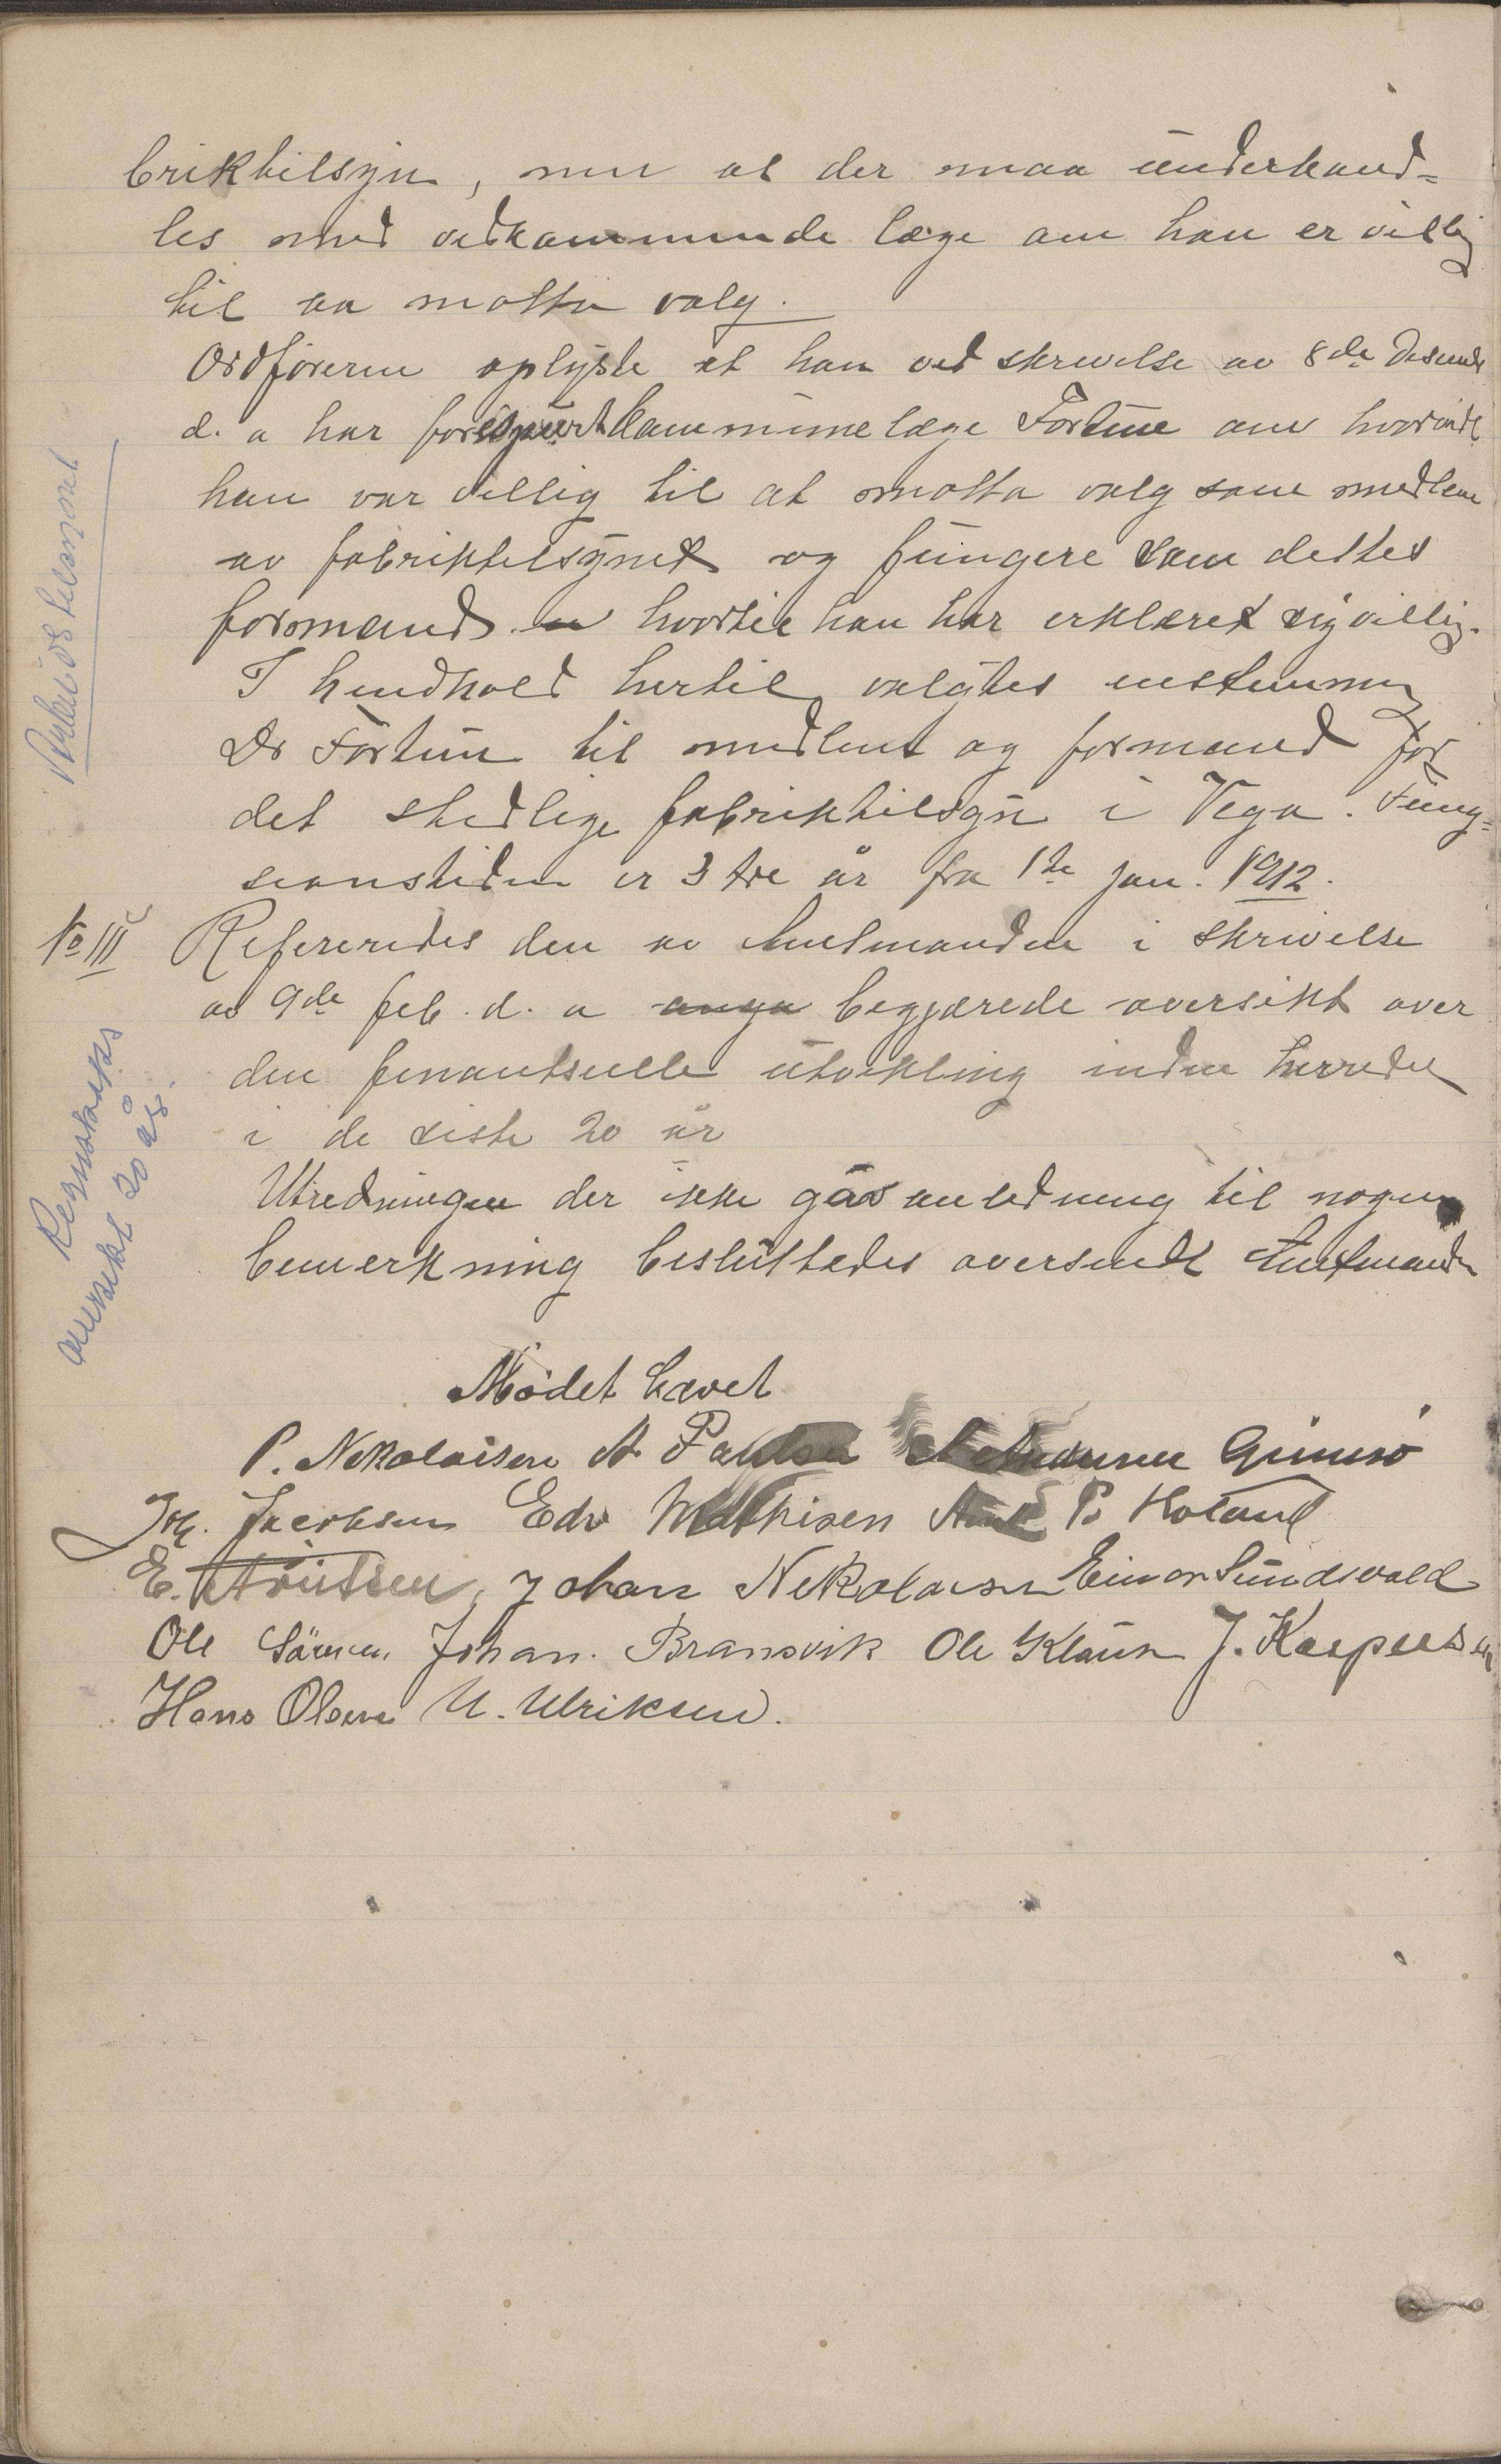 briktilsyn, men at der maa underhand=
les med vedkommende læge om han er villig
til aa motta valg.
Ordföreren oplyste at han ved skrivelse av 8de Desembr
d. a har forespurt kommunelæge Fortun om hvorvidt
han var villig til at motta valg som medlem
av fabriktilsynet og fungere som dettes
formand hvortil han har erklæret sig villig.
I henhold hertil valgtes enstemmig
Dr Fortun til medlem og formand for
det stedlige fabriktilsyn i Vega. Fung=
sionstiden er 3 tre år fra 1te jan. 1912.
No III
Refereredes den av Amtmanden i skrivelse
av 9de feb. d. a anga begjærede oversikt over
den finantsielle utvikling inden herredet
i de siste 20 år
Utredningen der ikke gav anledning til nogen
bemerkning besluttedes oversendt Amtmanden
Arbeidstilsynet
Regnskaps
oversikt 20 år.
Mödet hævet
P. Nikolaisen A Paulsen A Andersen Grimsö
Joh. Jacobsen Edv Mathisen P. Holand
E. Knutsen, Johan Nikolaisen Einar Sundsvold
Ole Johan. Bransvik Ole Klausen J. Kaspersen
Hans Olsen U. Ulriksen.